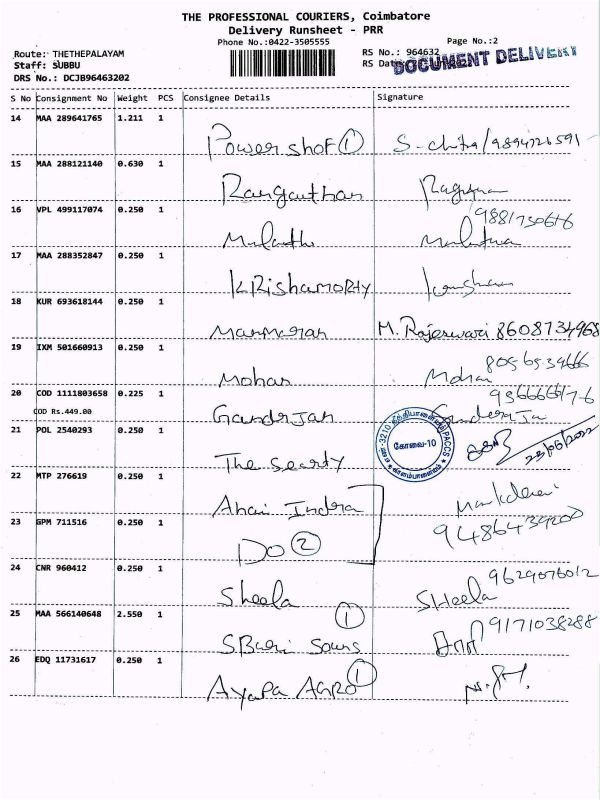 THE PROFESSIONAL COURIERS, Coimbatore
Delivery Runsheet - PRR
Phone No.:0422-3505555
Page No.:2
Route: THETHEPALAYAM
RS No.: 964632
Staff: SUBBU
RS Dat
DOCUMENT DELIVERY
DRS No.: DCJB96463202
S No Consignment No Weight PCS Consignee Details Signature
14 MAA 289641765 1.211 1
Power shot 1 S-chitra/9894726591
15 MAA 288121140 0.630 1
Ranganthan
16 VPL 499117074 0.250 1 9881750676
17 MAA 288352847 0.250 1
KRishamoRty
18 KUR 693618144 0.250 1
Manmaran M. Rajeswari 8608734968
19 IXM 501660913 0.250 1
Mohan Mohan
20 COD 1111803658 0.225 1
COD Rs.449.00
21 POL 2540293 0.250 1
கோவை-10
The Searty
22 MTP 276619 0.250 1
Indra
23 GPM 711516 0.250 1 9486439200
Do 2
24 CNR 960412 0.250 1 9629076012
Sheela SHeela
25 MAA 566140648 2.550 1 1 9171038288
26 EDQ 11731617 0.250 1
AyaPa AGRO 1